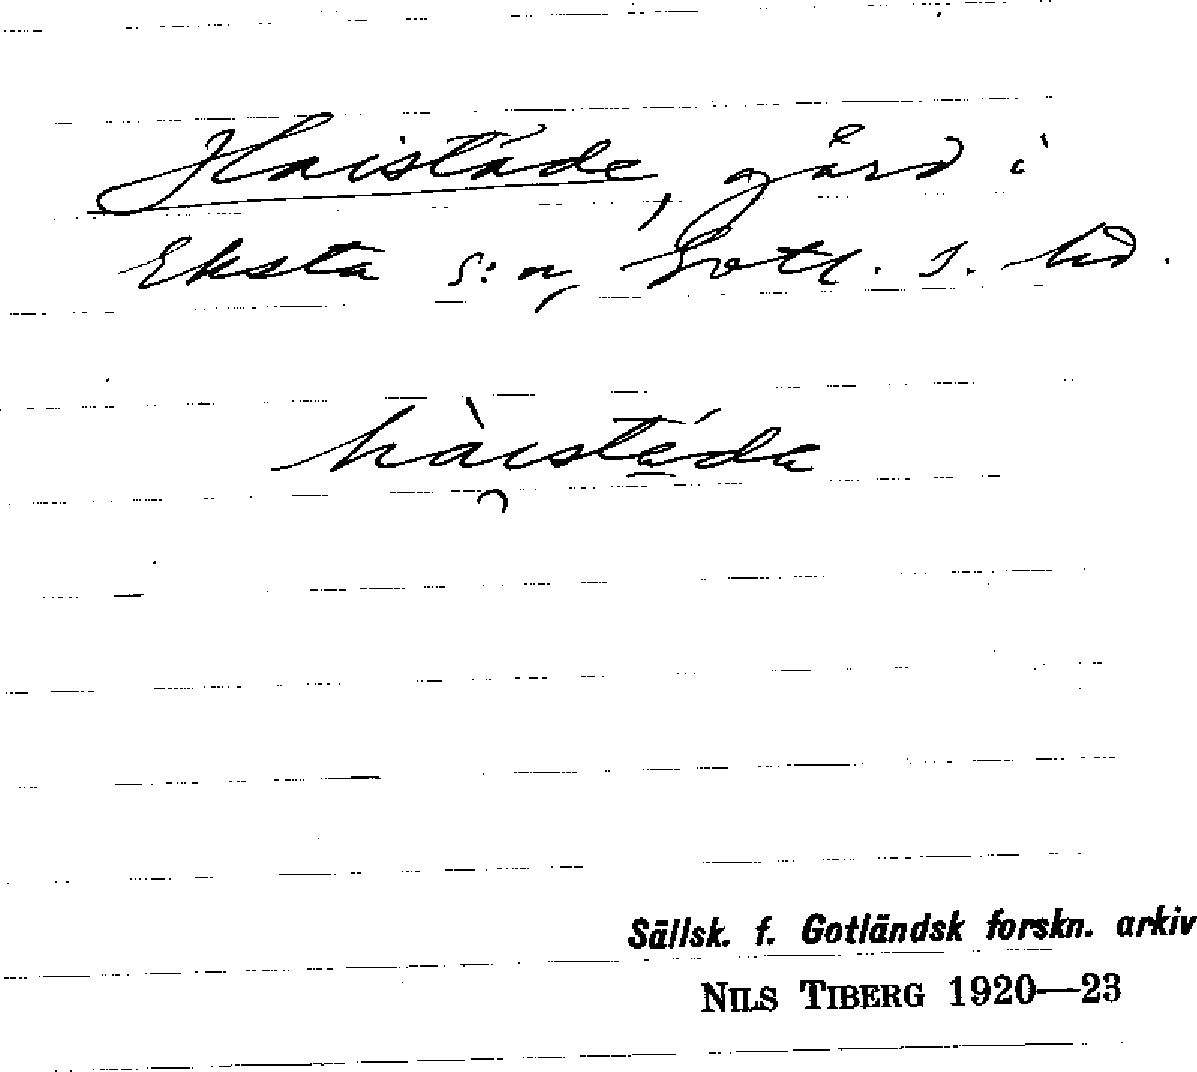 Haistäde, gård i
Eksta s:n, Gotl. s. hd.
hàistáda
Sällsk. f. Gotländsk forskn. arkiv
NILS TIBERG 1920—23